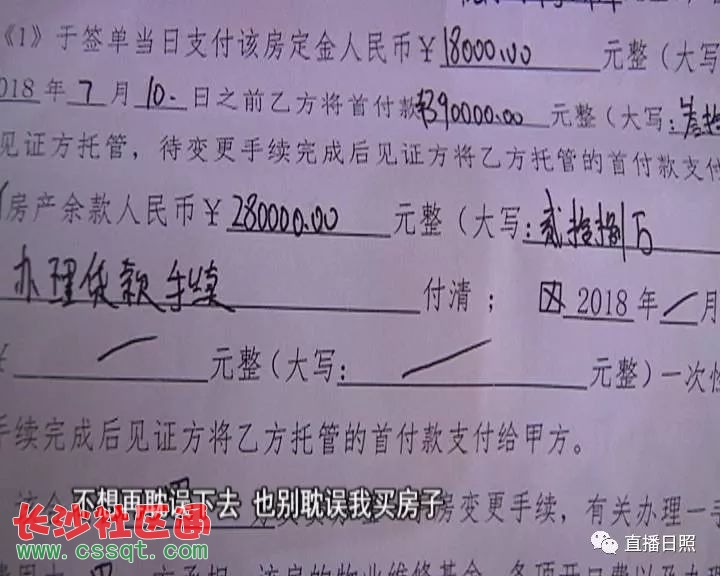 《1》于签单当日支付该房定金人民币￥18000.00元整（大写
018年7月10.日之前乙方将首付款390000.00元整（大写：叁拾
见证方托管，待变更手续完成后见证方将乙方托管的首付款支付
房产余款人民币￥280000.00元整（大写：贰拾捌万
办理贷款手续付清；2018年／月
￥／元整（大写：／元整）一次性
手续完成后见证方将乙方托管的首付款支付给甲方。
房变更手续，有关办理一手
不想再耽误下去 也别耽误我买房子
长沙社区通
www.cssqt.com
直播日照